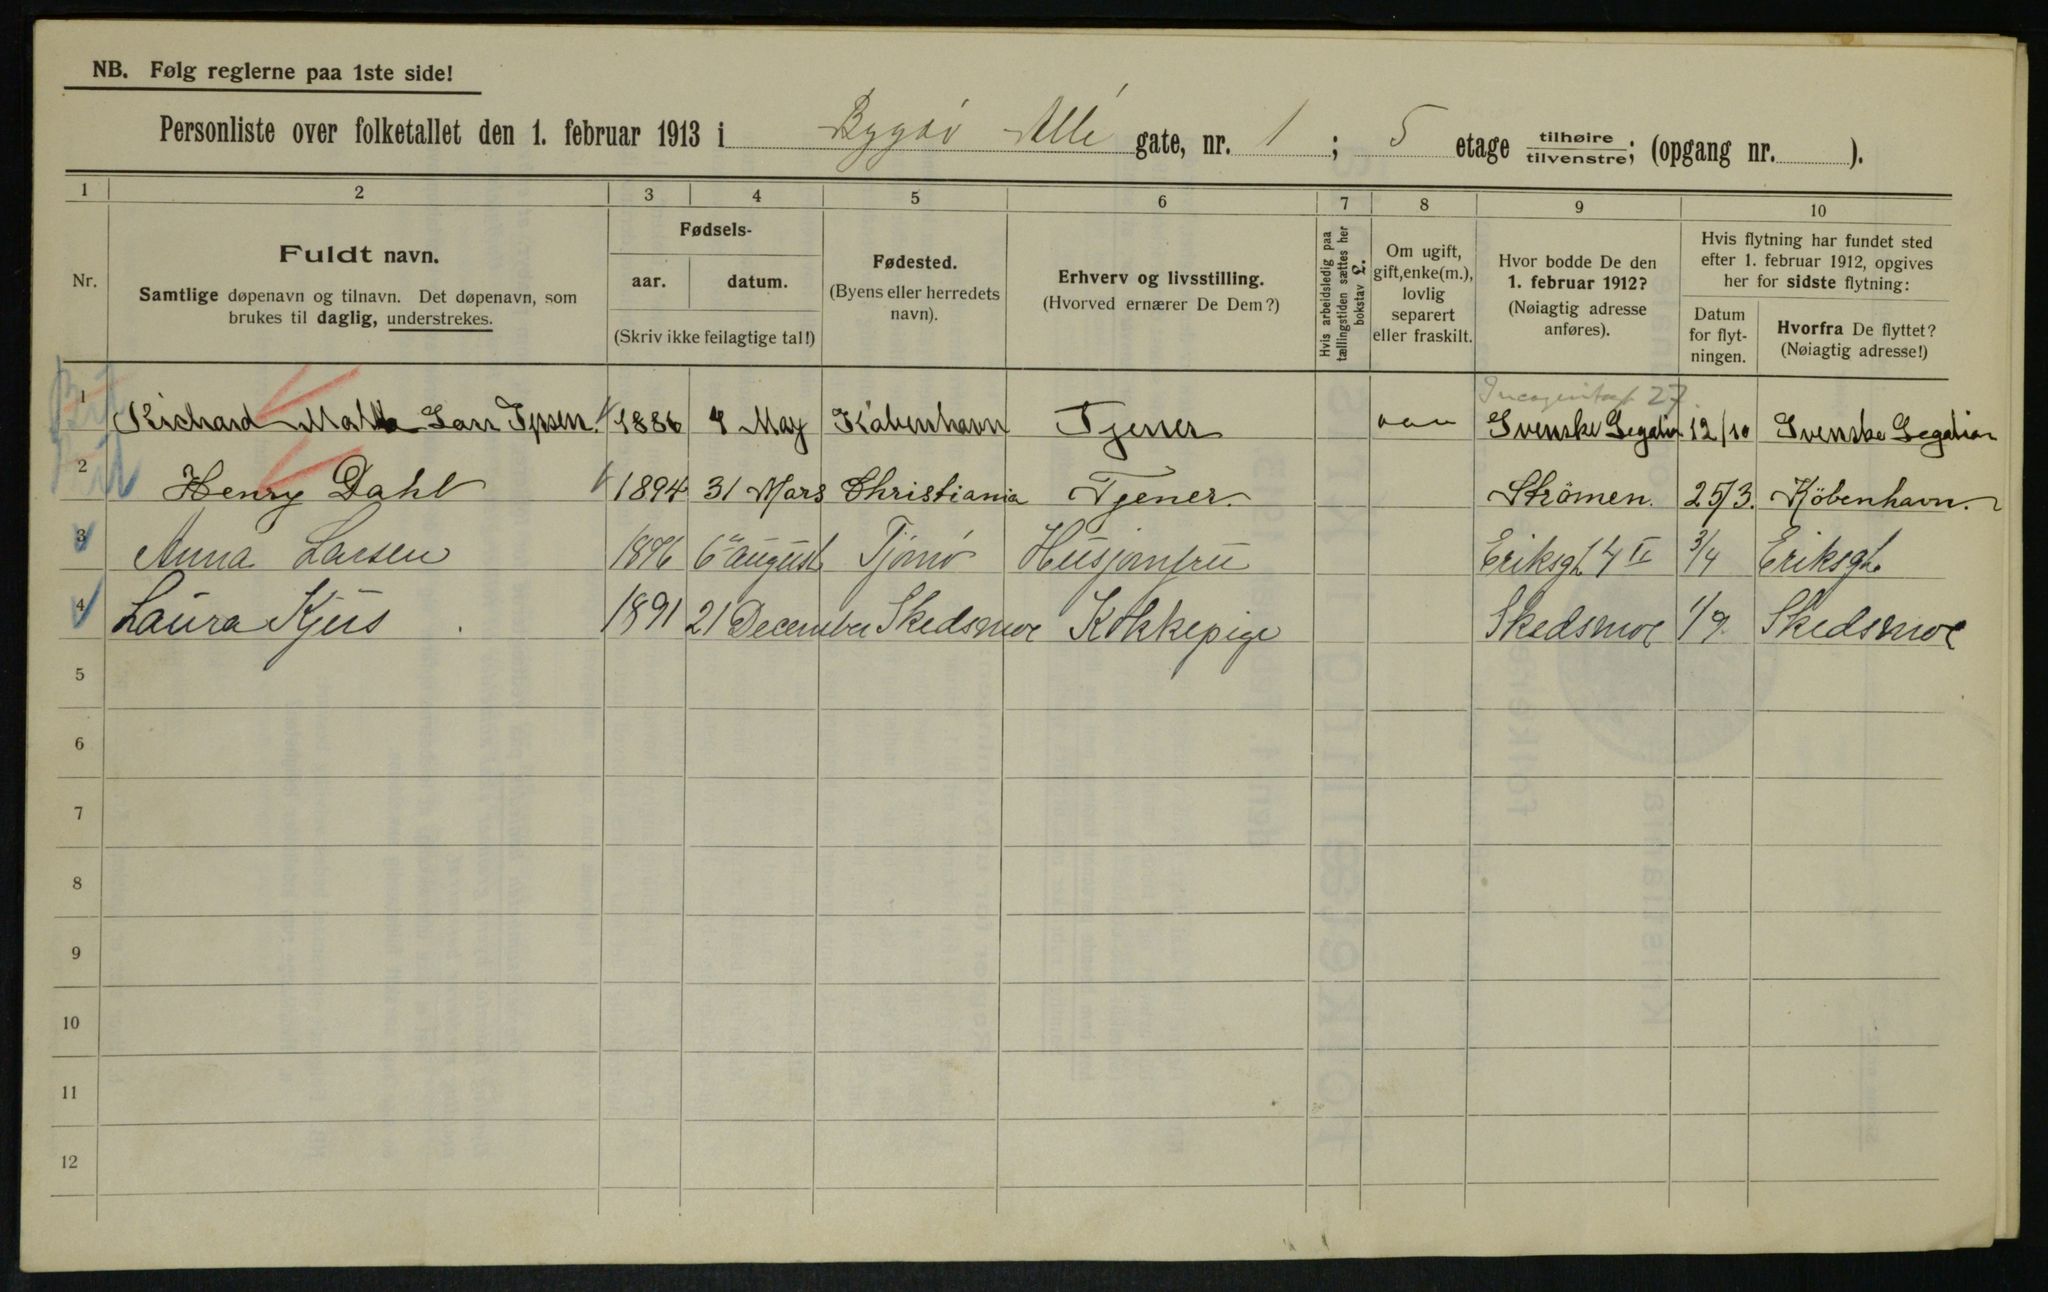 NB. Følg reglerne paa 1ste side!
Personliste over folketallet den 1. februar 1913 i Bygdö Allé gate, nr. 1 ; 5 etage tilhøire/tilvenstre; (opgang nr. ).
1 2 3 4 5 6 7 8 9 10
Nr.
Fuldt navn.
Samtlige døpenavn og tilnavn. Det døpenavn, som
brukes til daglig, understrekes.
Fødsels-
aar. datum.
(Skriv ikke feilagtige tal!)
Fødested.
(Byens eller herredets
navn).
Erhverv og livsstilling.
(Hvorved ernærer De Dem?)
Hvis arbeidsledig paa
tællingstiden sættes her
bokstav £.
Om ugift,
gift, enke(m.),
lovlig
separert
eller fraskilt.
Hvor bodde De den
1. februar 1912?
(Nøiagtig adresse
anføres).
Hvis flytning har fundet sted
efter 1. februar 1912, opgives
her for sidste flytning:
Datum
for flyt-
ningen.
Hvorfra De flyttet?
(Nøiagtig adresse!)
27
1 Richard 1886 4 May Köbenhavn Tjener Svenske Legation 12/10 Svenske Legation
2 Henry Dahl 1894 31 Mars Christiania Tjener. Strömen. 25/3. Köbenhavn.
3 Anna Larsen 1896 6 august Tjömö Husjomfru Eriksgt 4 II 3/4 Eriksgt.
4 Laura Kjus 1891 21 December Skedsmoe Kokkepige Skedsmoe 1/9. Skedsmoe
5
6
7
8
9
10
11
12